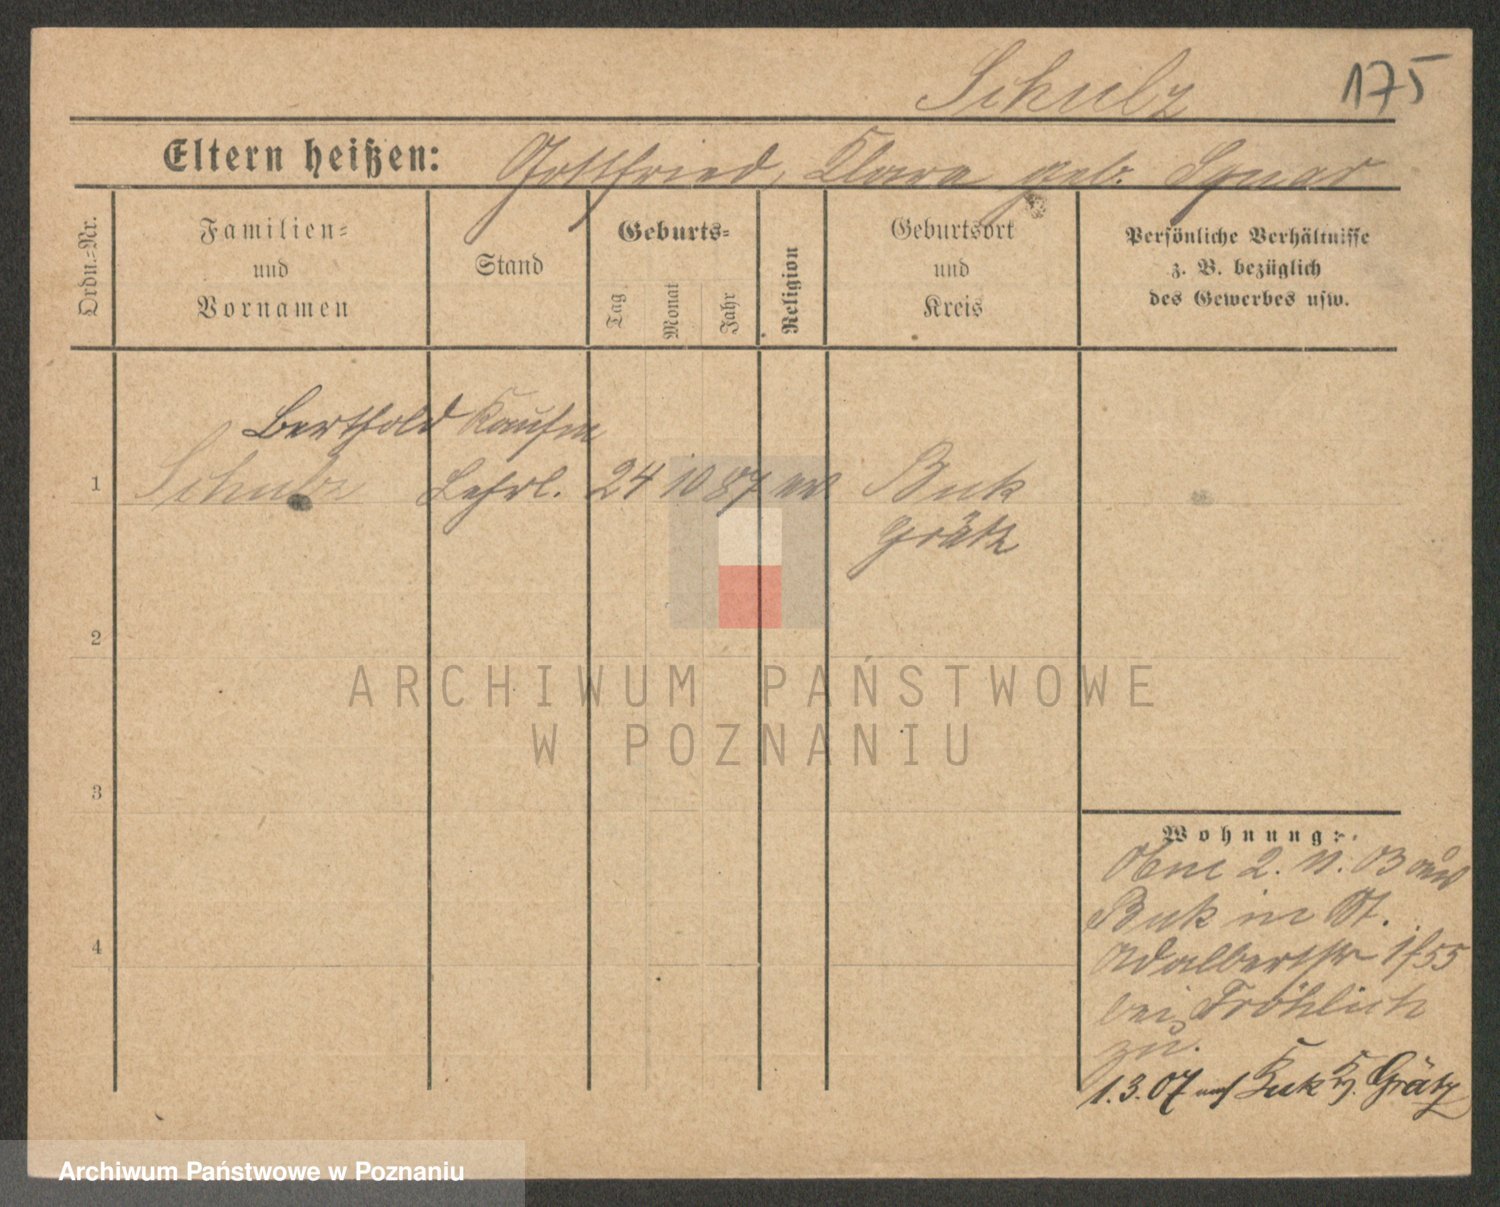 Schulz 175
Eltern heißen: Gottfried, Klara geb.
Ordn.-Nr.
Familien-
und
Vornamen
Stand
Geburts-
Tag
Monat
Jahr
Religion
Geburtsort
und
Kreis
Persönliche Verhältnisse
z. B. bezüglich
des Gewerbes usw.
Berthold Kaufm
1 Schulz Lehrl. 24 10 87 ev Buk
Grätz
2
3
4
Wohnung:
2. 11. 03 aus
Buk in St.
Adalbertstr 1 / 55
bei Fröhlich
zu.
1.3.07 nach Buk Kr. Grätz
ARCHIWUM PAŃSTWOWE
W POZNANIU
Archiwum Państwowe w Poznaniu